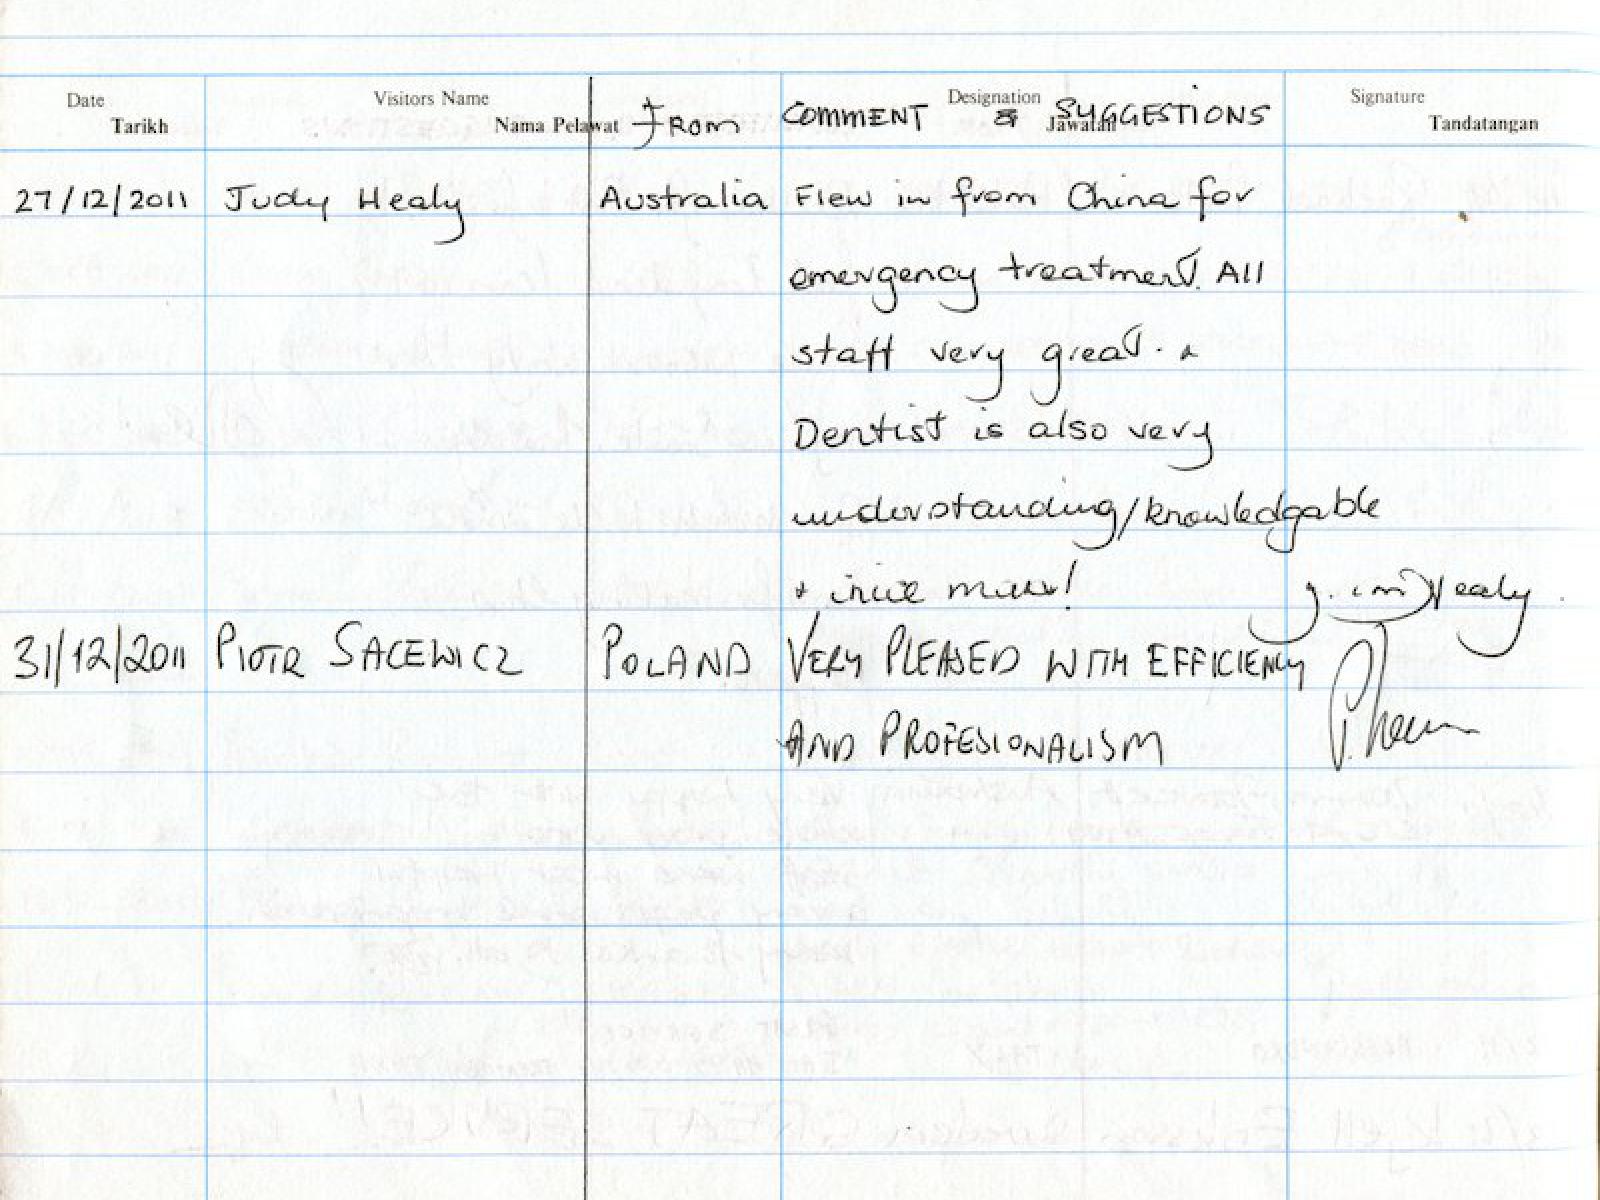 Date Visitors Name Designation Signature
Tarikh Nama Pelawat FROM COMMENT & SUGGESTIONS Jawatan Tandatangan
27/12/2011 Judy Healy Australia Flew in from China for
emergency treatment. All
staff very great.
Dentist is also very
understanding/knowledgable
+ nice man! Healy
31/12/2011 PIOTR SACEWICZ POLAND VERY PLEASED WITH EFFICIENCY
AND PROFESIONALISM